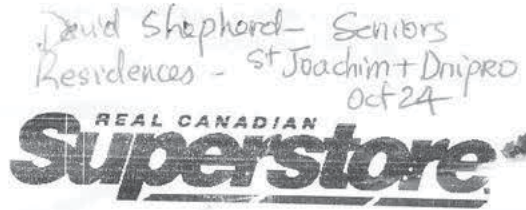 David Shephard - Seniors
Residences - St Joachim + Dnipro
Oct 24
REAL CANADIAN
Superstore